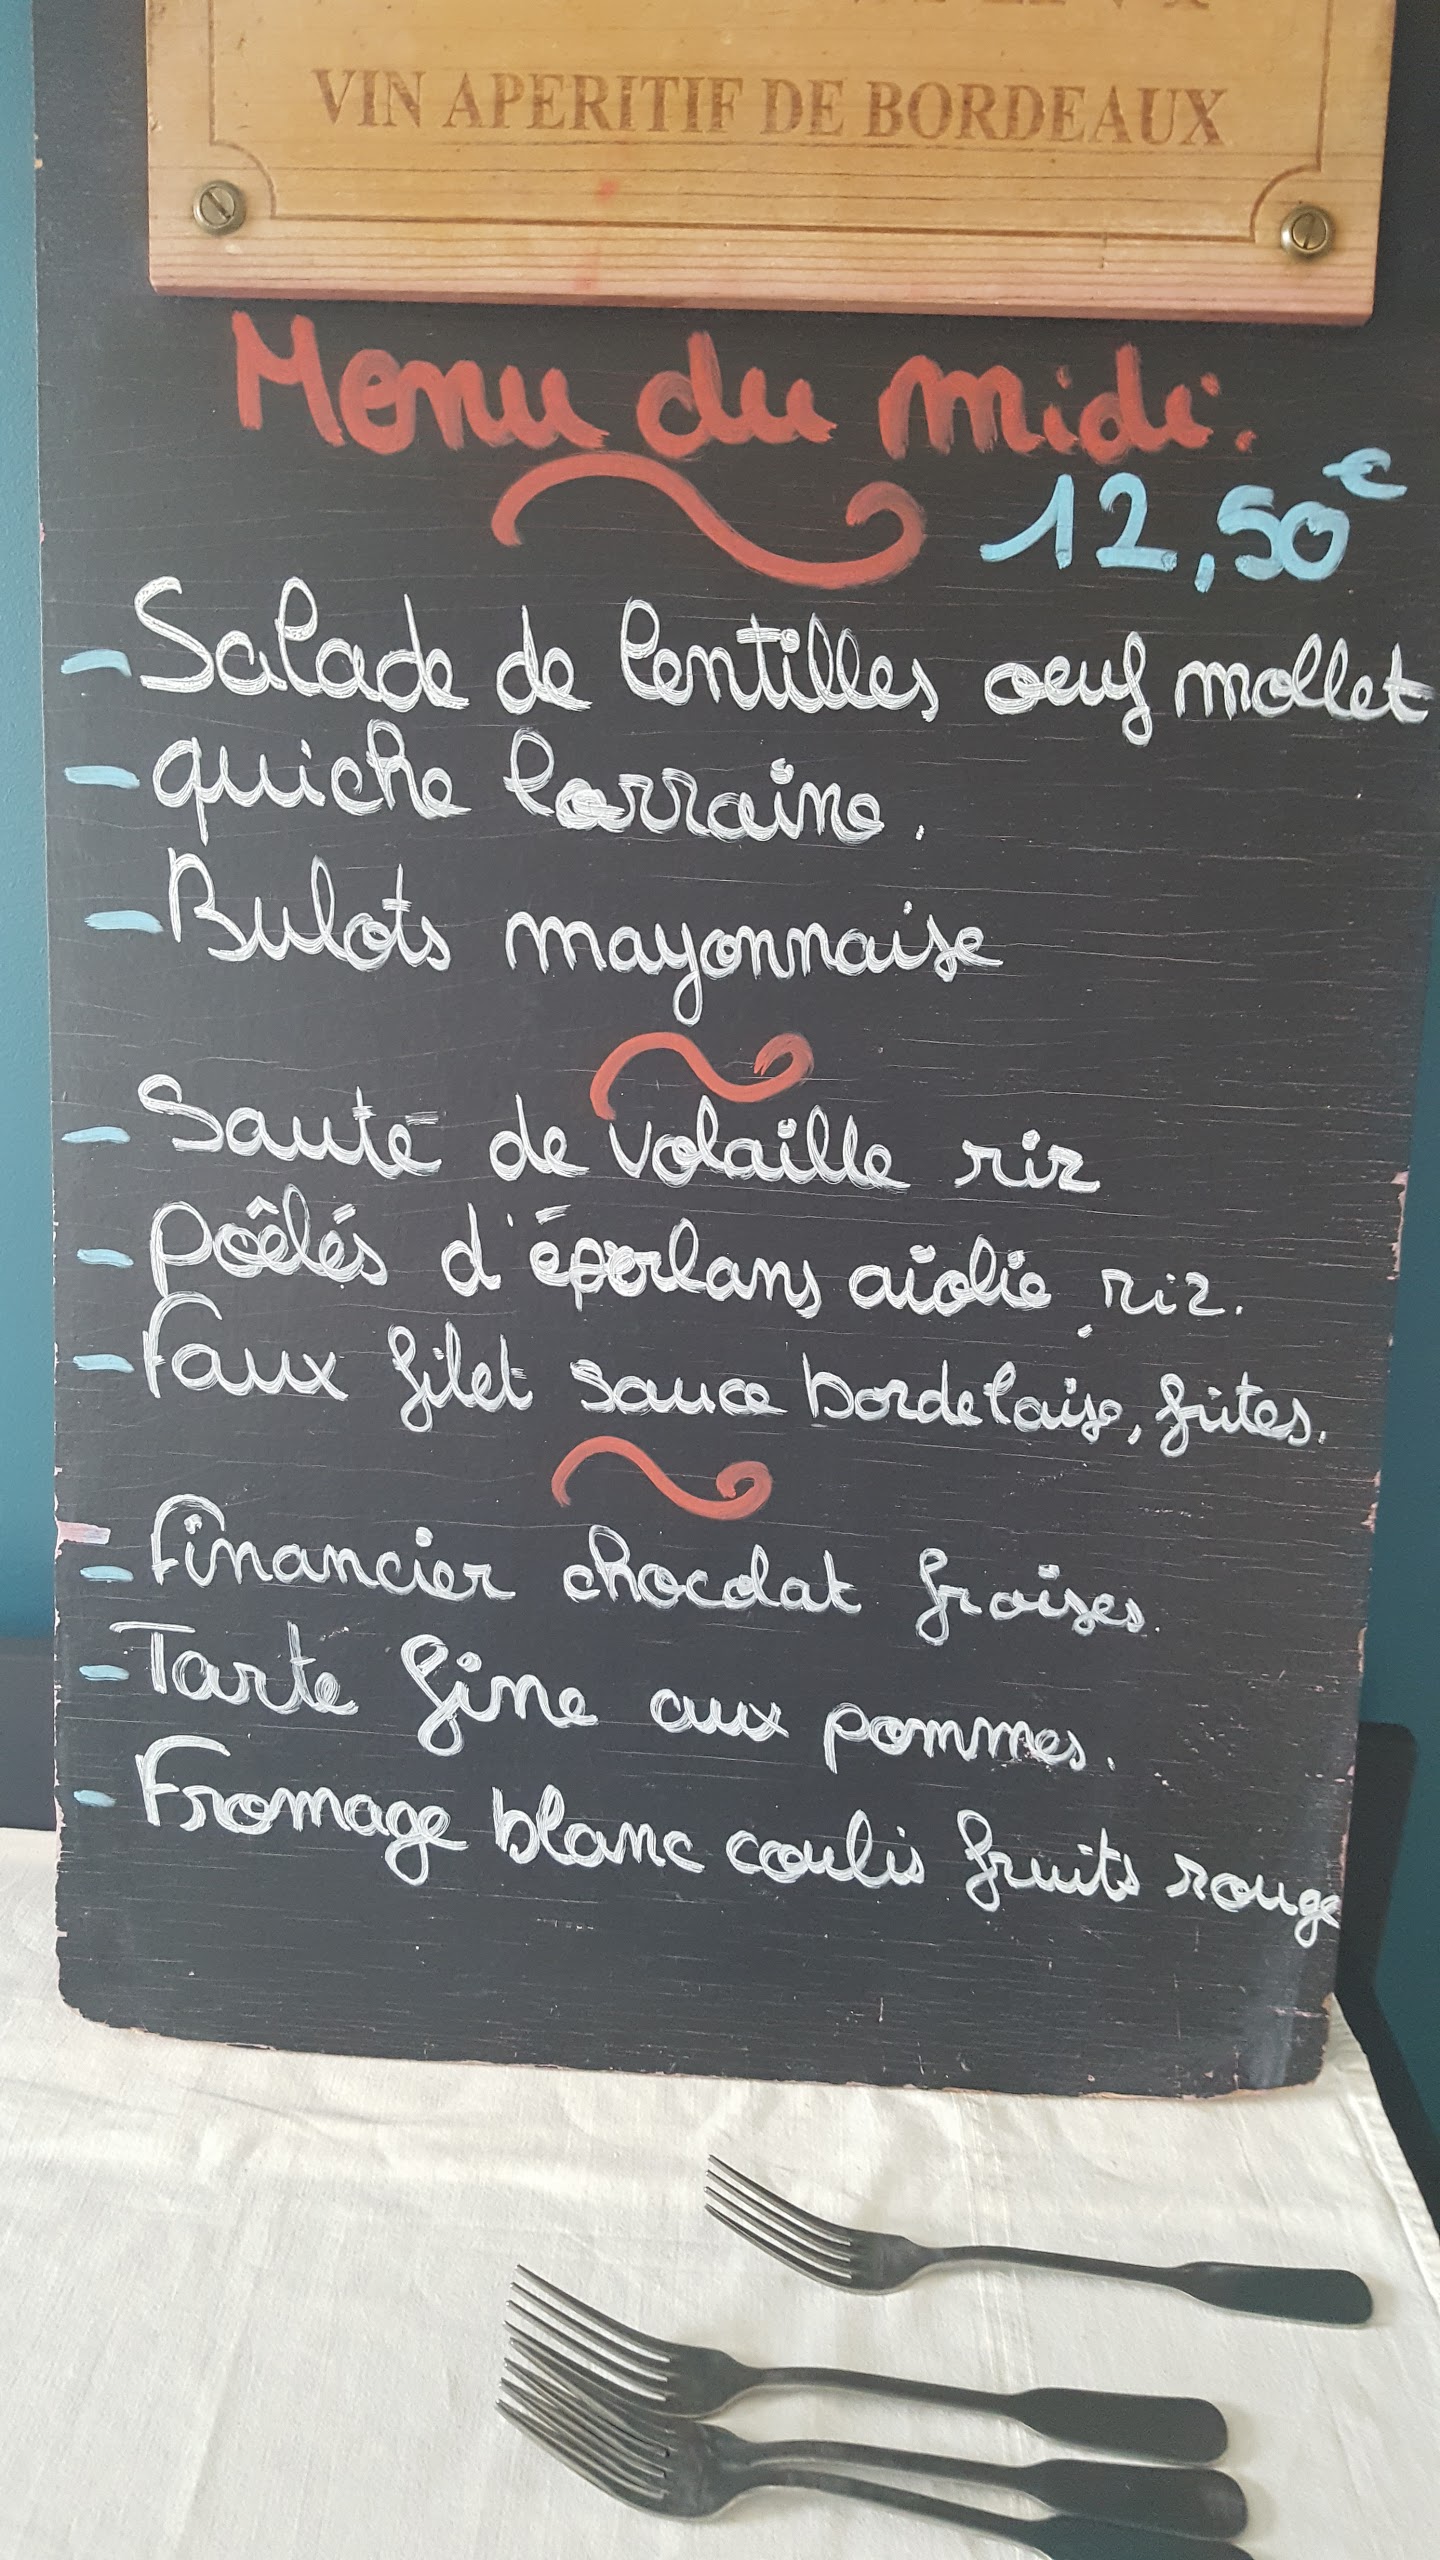 VIN APERITIF DE BORDEAUX
Menu du midi.
12,50€
- Salade de lentilles oeuf mollet
- quiche lorraine.
- Bulots mayonnaise
- Sauté de volaille riz
- poêlés d'éperlans aïolie riz.
- Faux filet sauce bordelaise, frites.
- Financier chocolat fraises.
- Tarte fine aux pommes.
- Fromage blanc coulis fruits rouge